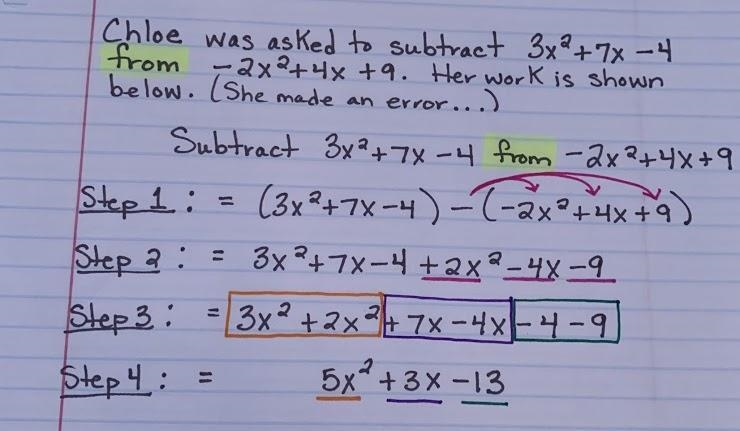 Chloe was asked to subtract 3x²+7x-4
from -2x²+4x+9. Her work is shown
below. (She made an error...)
Subtract 3x²+7x-4 from -2x²+4x+9
Step 1: = (3x²+7x-4)-(-2x²+4x+9)
Step 2: = 3x²+7x-4+2x²-4x-9
Step 3: = 3x²+2x²+7x-4x-4-9
Step 4: = 5x²+3x-13